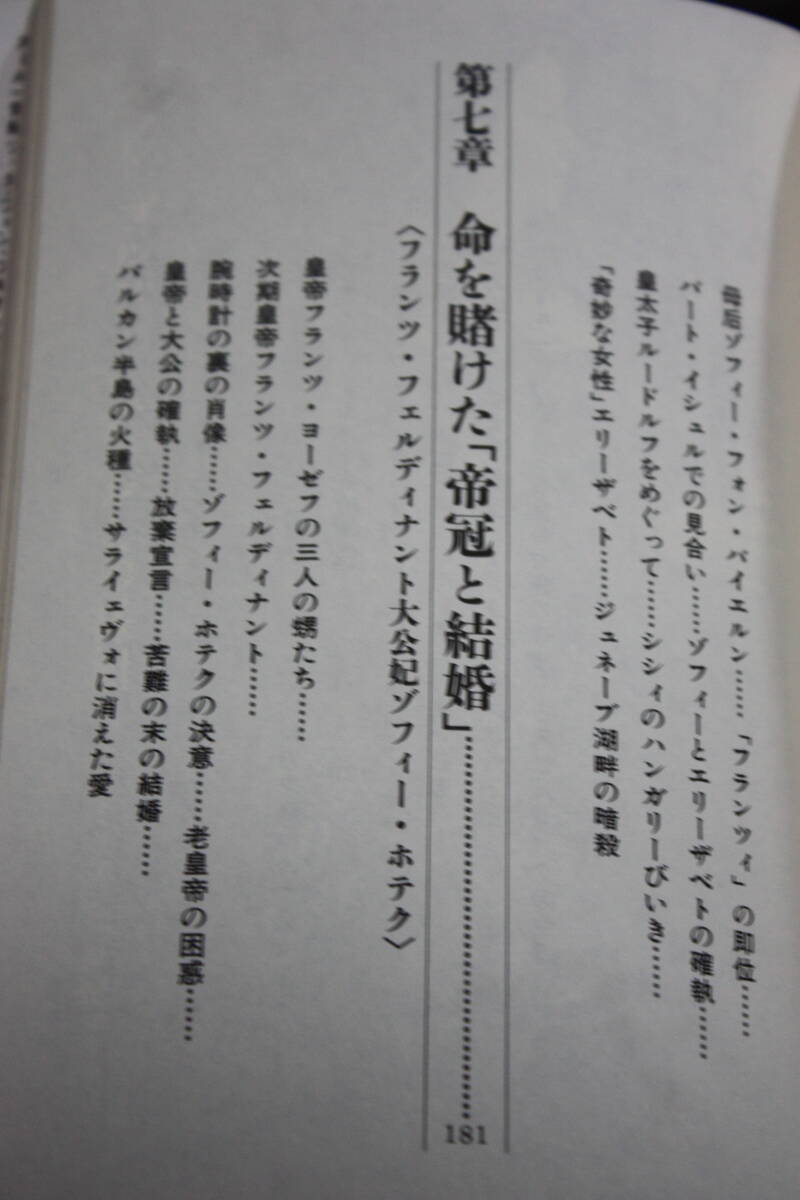 母后ゾフィー・フォン・バイエルン……「フランツィ」の即位……
バート・イシュルでの見合い……ゾフィーとエリーザベトの確執……
皇太子ルードルフをめぐって……シシィのハンガリーびいき……
「奇妙な女性」エリーザベト……ジュネーブ湖畔の暗殺
第七章　命を賭けた「帝冠と結婚」……………………181
〈フランツ・フェルディナント大公妃ゾフィー・ホテク〉
皇帝フランツ・ヨーゼフの三人の甥たち……
次期皇帝フランツ・フェルディナント……
腕時計の裏の肖像……ゾフィー・ホテクの決意……老皇帝の困惑……
皇帝と大公の確執……放棄宣言……苦難の末の結婚……
バルカン半島の火種……サライェヴォに消えた愛